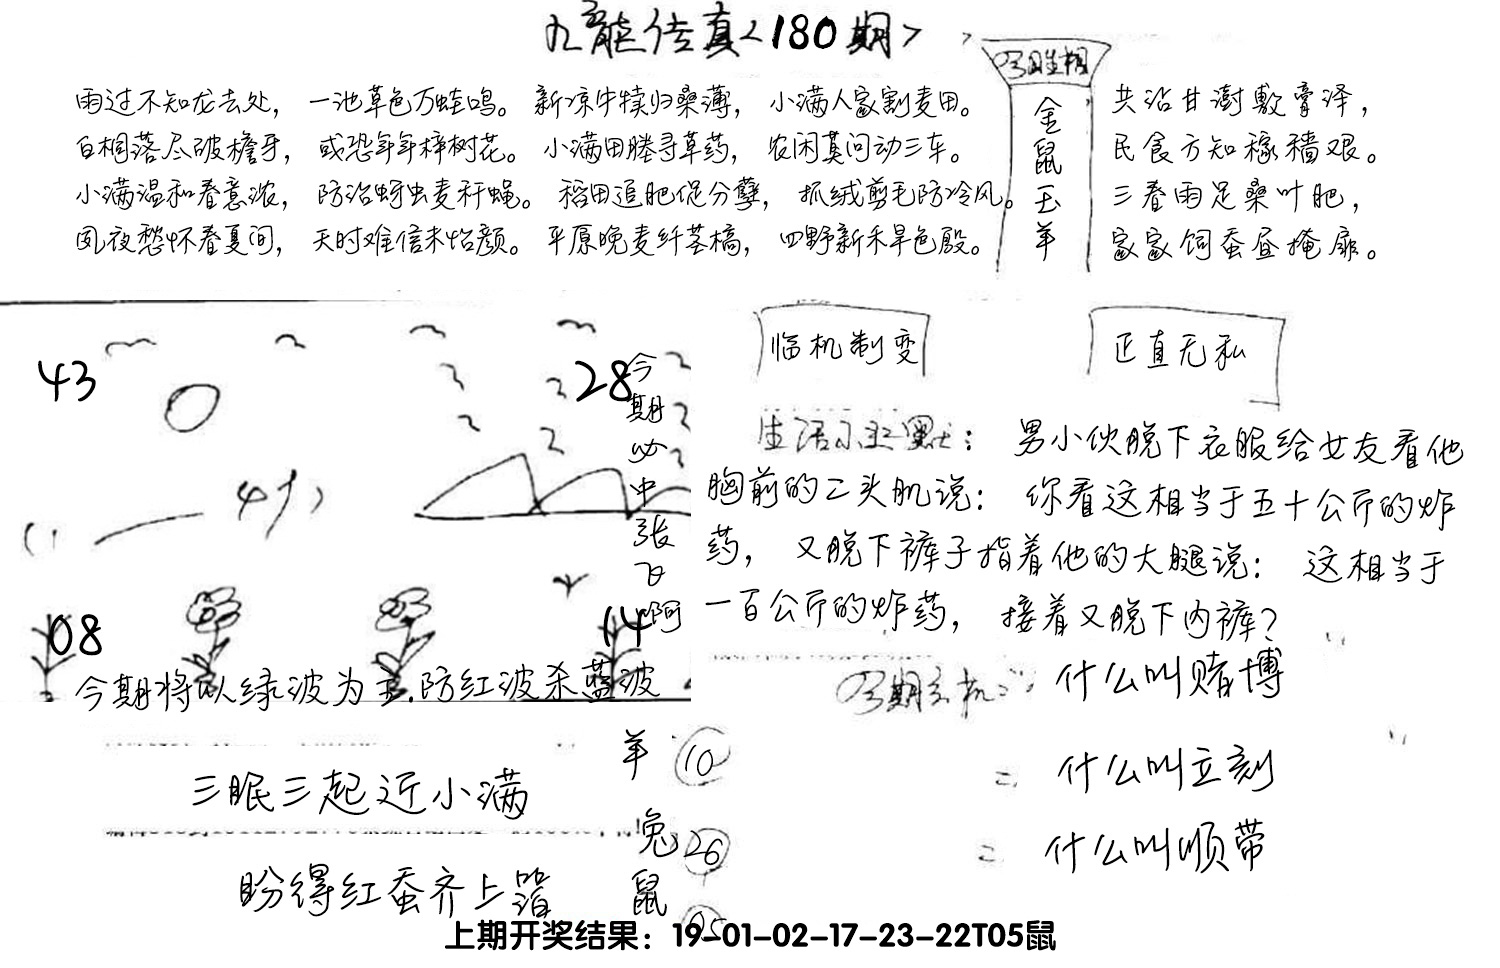 九龙传真<180期>
今期生相
金鼠玉羊
雨过不知龙去处，一池草色万蛙鸣。新凉牛犊归桑薄，小满人家割麦田。
白桐落尽破檐牙，或恐年年梓树花。小满田塍寻草药，农闲莫问动三车。
小满温和春意浓，防治蚜虫麦秆蝇。稻田追肥促分孽，抓绒剪毛防冷风。
夙夜愁怀春夏间，天时难信未怡颜。平原晚麦纤茎槁，四野新禾旱色殷。
共沾甘澍敷膏泽，
民食方知稼穑艰。
三春雨足桑叶肥，
家家饲蚕昼掩扉。
43
28
今期必中张飞啊
08
14
今期将以绿波为主.防红波杀蓝波
临机制变
正直无私
生活幽默：男小伙脱下衣服给女友看他
胸前的二头肌说：你看这相当于五十公斤的炸
药，又脱下裤子指着他的大腿说：这相当于
一百公斤的炸药，接着又脱下内裤？
今期玄机：什么叫赌博
=什么叫立刻
=什么叫顺带
三眠三起近小满
盼得红蚕齐上箔
羊 10
兔 26
鼠 05
上期开奖结果：19-01-02-17-23-22T05鼠